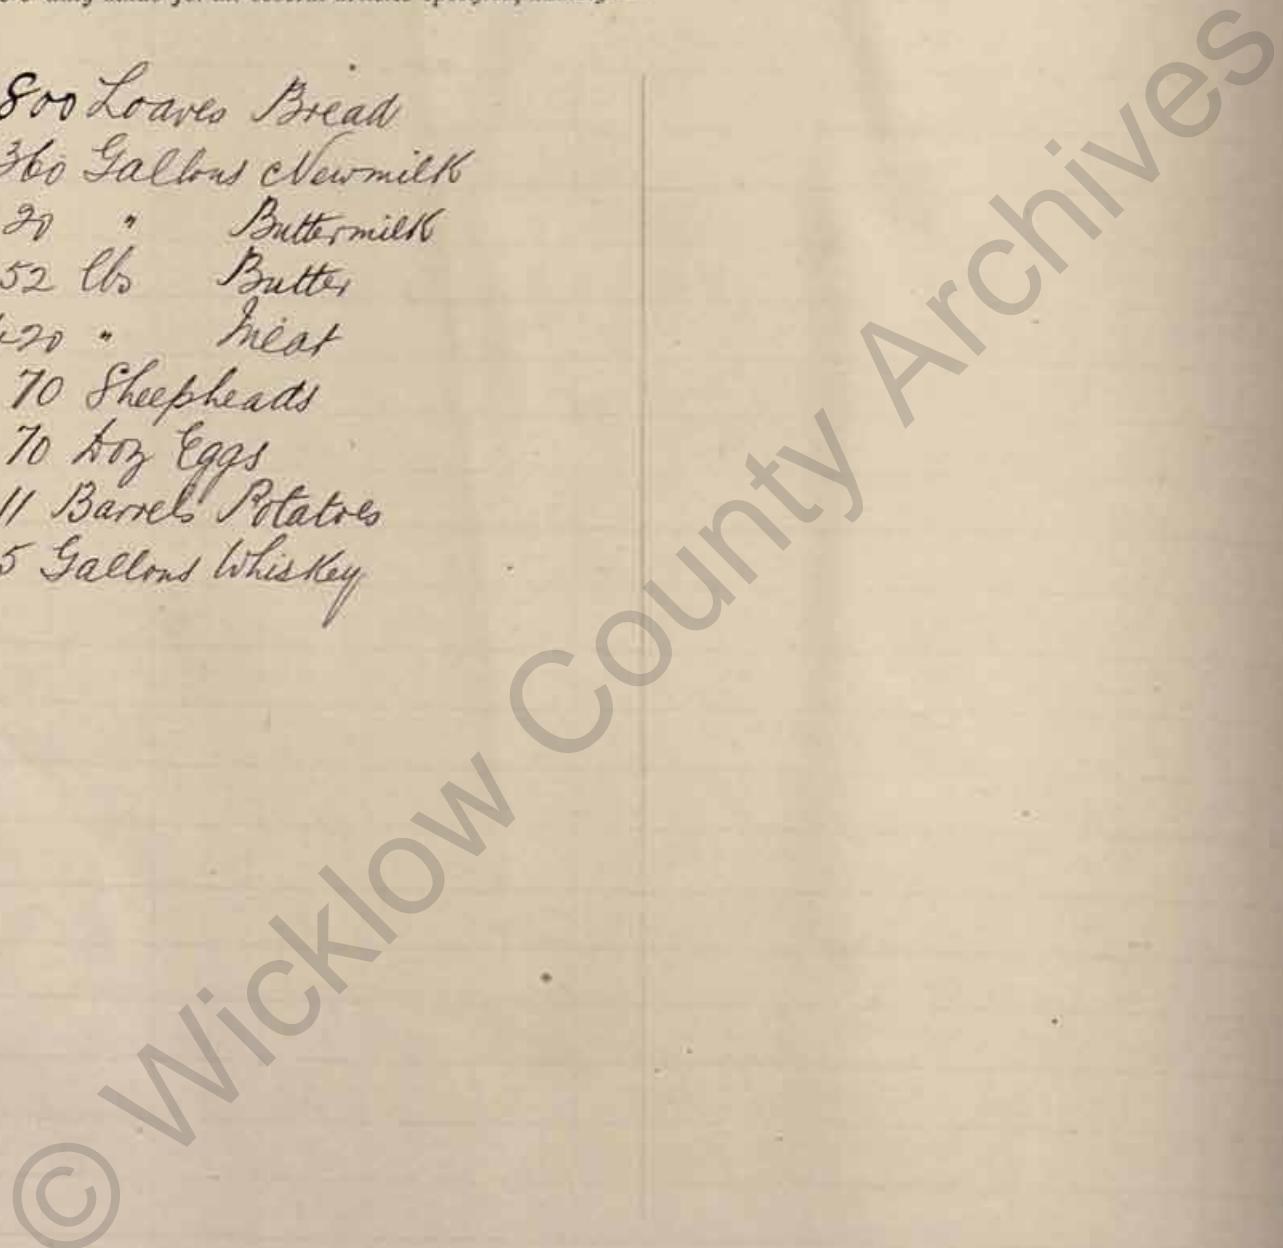 800 Loaves Bread
360 Gallons Newmilk
20 " Buttermilk
52 lbs Butter
420 " Meat
70 Sheepheads
70 Doz Eggs
11 Barrels Potatoes
5 Gallons Whiskey
© Wicklow County Archives